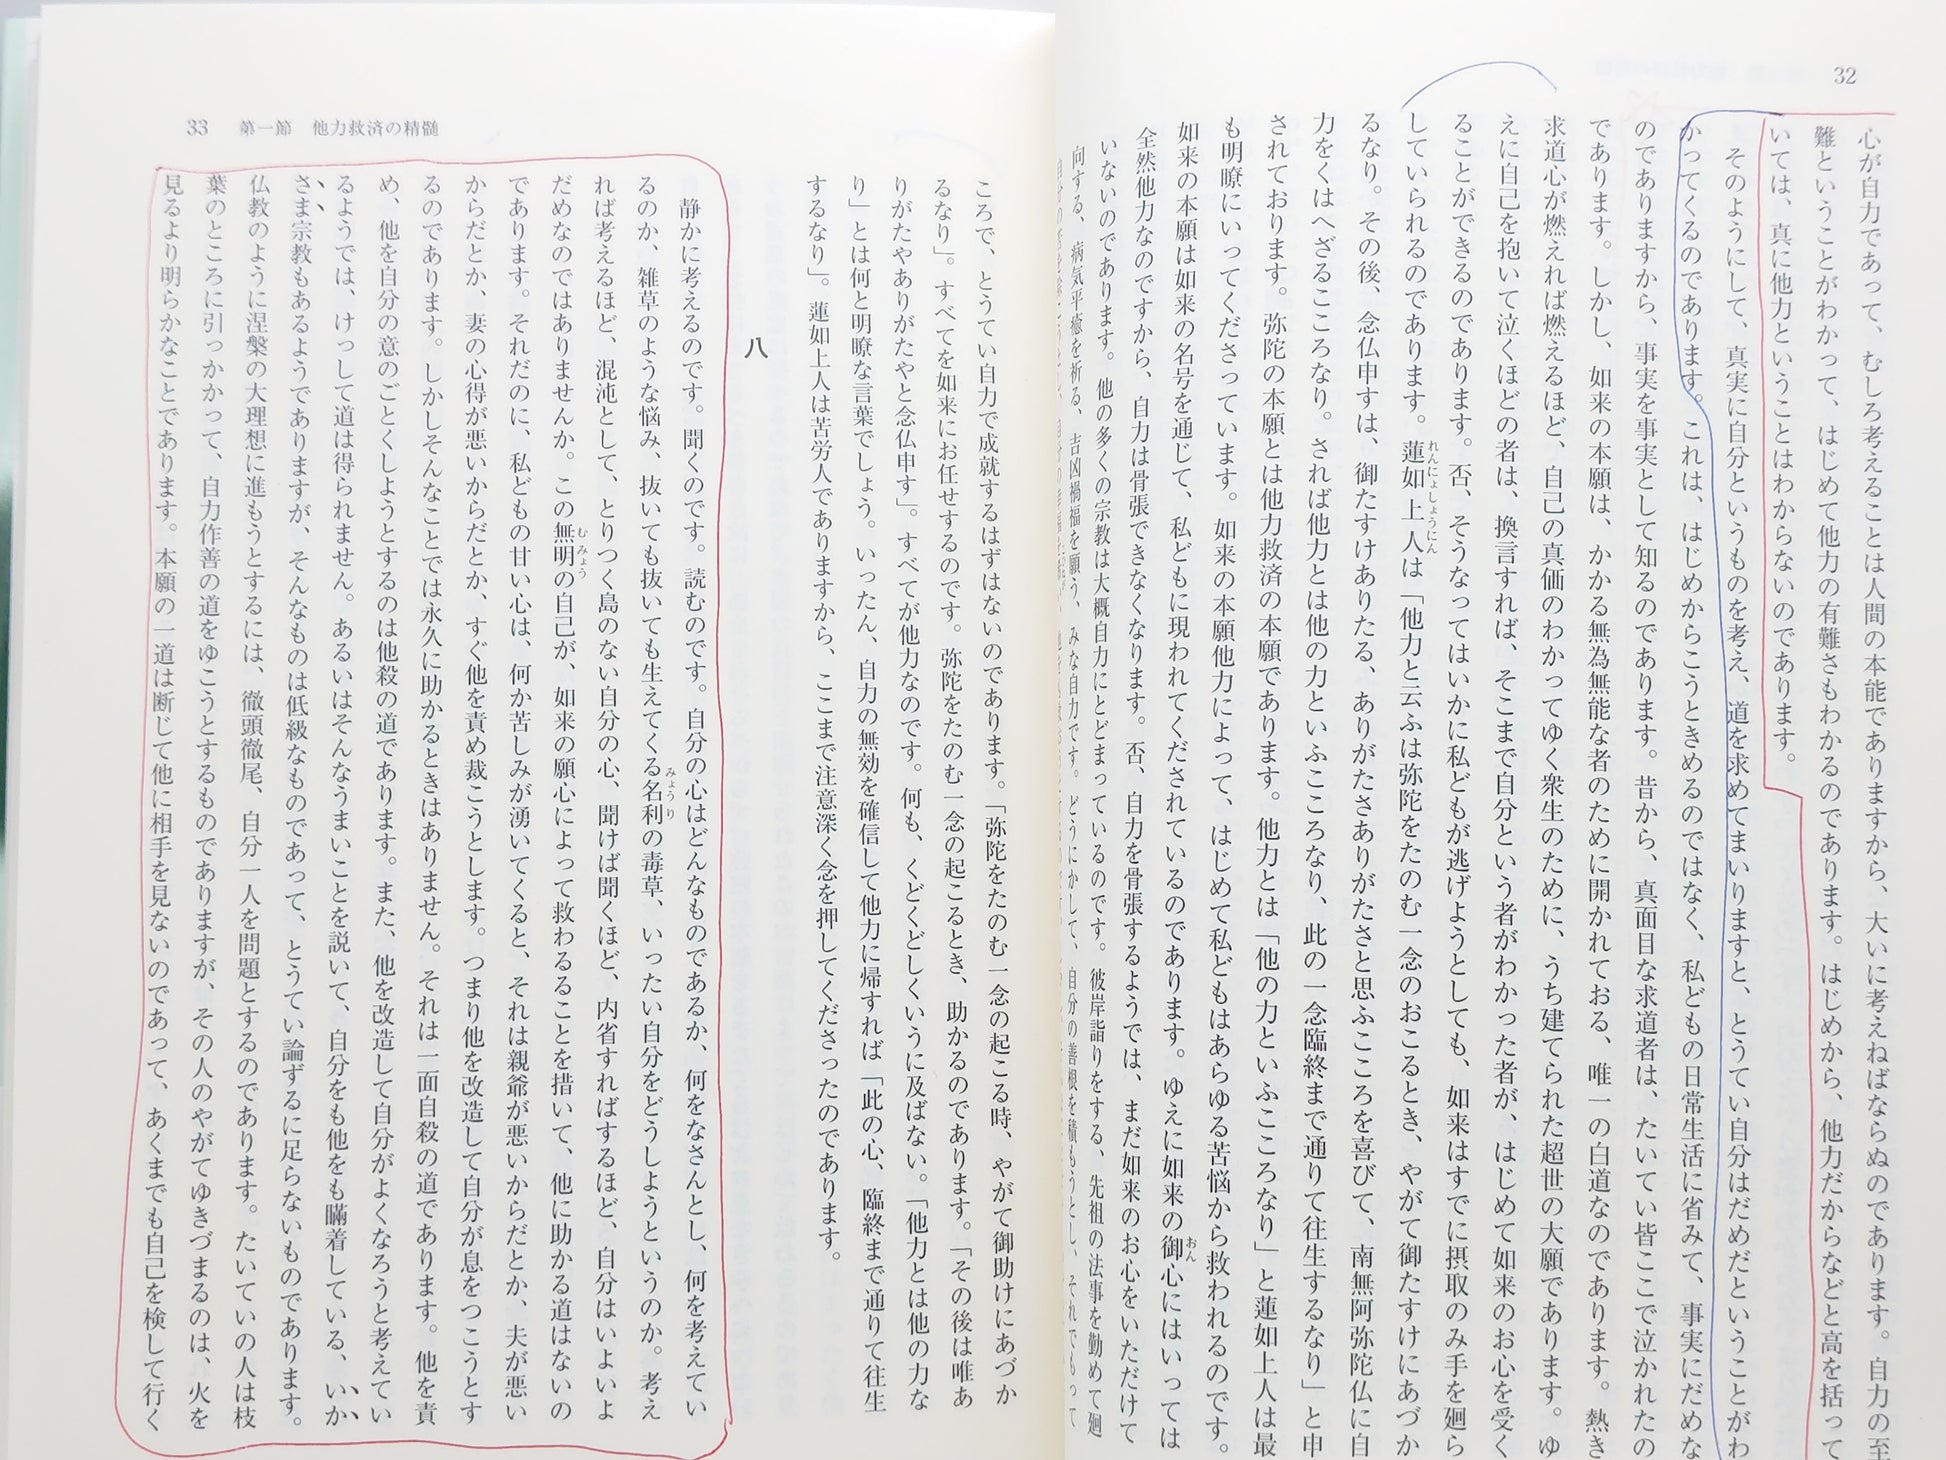 32
心が自力であって、むしろ考えることは人間の本能でありますから、大いに考えねばならぬのであります。自力の至
難ということがわかって、はじめて他力の有難さもわかるのであります。はじめから、他力だからなどと高を括って
いては、真に他力ということはわからないのであります。
そのようにして、真実に自分というものを考え、道を求めてまいりますと、とうてい自分はだめだということがわ
かってくるのであります。これは、はじめからこうときめるのではなく、私どもの日常生活に省みて、事実にだめな
のでありますから、事実を事実として知るのであります。昔から、真面目な求道者は、たいてい皆ここで泣かれたの
であります。しかし、如来の本願は、かかる無為無能な者のために開かれておる、唯一の白道なのであります。熱き
求道心が燃えれば燃えるほど、自己の真価のわかってゆく衆生のために、うち建てられた超世の大願であります。ゆ
えに自己を抱いて泣くほどの者は、換言すれば、そこまで自分という者がわかった者が、はじめて如来のお心を受く
ることができるのであります。否、そうなってはいかに私どもが逃げようとしても、如来はすでに摂取のみ手を廻ら
していられるのであります。蓮如上人は「他力と云ふは弥陀をたのむ一念のおこるとき、やがて御たすけにあづか
れんにょしょうにん
るなり。その後、念仏申すは、御たすけありたる、ありがたさありがたさと思ふこころを喜びて、南無阿弥陀仏に自
力をくはへざるこころなり。されば他力とは他の力といふこころなり、此の一念臨終まで通りて往生するなり」と申
されております。弥陀の本願とは他力救済の本願であります。他力とは「他の力といふこころなり」と蓮如上人は最
も明瞭にいってくださっています。如来の本願他力によって、はじめて私どもはあらゆる苦悩から救われるのです。
如来の本願は如来の名号を通じて、私どもに現われてくだされているのであります。ゆえに如来の御心にはいっては
おん
全然他力なのですから、自力は骨張できなくなります。否、自力を骨張するようでは、まだ如来のお心をいただけて
いないのであります。他の多くの宗教は大概自力にとどまっているのです。彼岸詣りをする、先祖の法事を勤めて廻
向する、病気平癒を祈る、吉凶禍福を願う、みな自力です。どうにかして、自分の善根を積もうとし、それでもって
33 第一節 他力救済の精髄
ころで、とうてい自力で成就するはずはないのであります。「弥陀をたのむ一念の起こる時、やがて御助けにあづか
るなり」。すべてを如来にお任せするのです。弥陀をたのむ一念の起こるとき、助かるのであります。「その後は唯あ
りがたやありがたやと念仏申す」。すべてが他力なのです。何も、くどくどしくいうに及ばない。「他力とは他の力な
り」とは何と明瞭な言葉でしょう。いったん、自力の無効を確信して他力に帰すれば「此の心、臨終まで通りて往生
するなり」。蓮如上人は苦労人でありますから、ここまで注意深く念を押してくださったのであります。
八
静かに考えるのです。聞くのです。読むのです。自分の心はどんなものであるか、何をなさんとし、何を考えてい
るのか、雑草のような悩み、抜いても抜いても生えてくる名利の毒草、いったい自分をどうしようというのか。考え
みょうり
れば考えるほど、混沌として、とりつく島のない自分の心、聞けば聞くほど、内省すればするほど、自分はいよいよ
だめなのではありませんか。この無明の自己が、如来の願心によって救わるることを措いて、他に助かる道はないの
むみょう
であります。それだのに、私どもの甘い心は、何か苦しみが湧いてくると、それは親爺が悪いからだとか、夫が悪い
からだとか、妻の心得が悪いからだとか、すぐ他を責め裁こうとします。つまり他を改造して自分が息をつこうとす
るのであります。しかしそんなことでは永久に助かるときはありません。それは一面自殺の道であります。他を責
め、他を自分の意のごとくしようとするのは他殺の道であります。また、他を改造して自分がよくなろうと考えてい
るようでは、けっして道は得られません。あるいはそんなうまいことを説いて、自分をも他をも瞞着している、いか
さま宗教もあるようでありますが、そんなものは低級なものであって、とうてい論ずるに足らないものであります。
仏教のように涅槃の大理想に進もうとするには、徹頭徹尾、自分一人を問題とするのであります。たいていの人は枝
葉のところに引っかかって、自力作善の道をゆこうとするものでありますが、その人のやがてゆきづまるのは、火を
見るより明らかなことであります。本願の一道は断じて他に相手を見ないのであって、あくまでも自己を検して行く